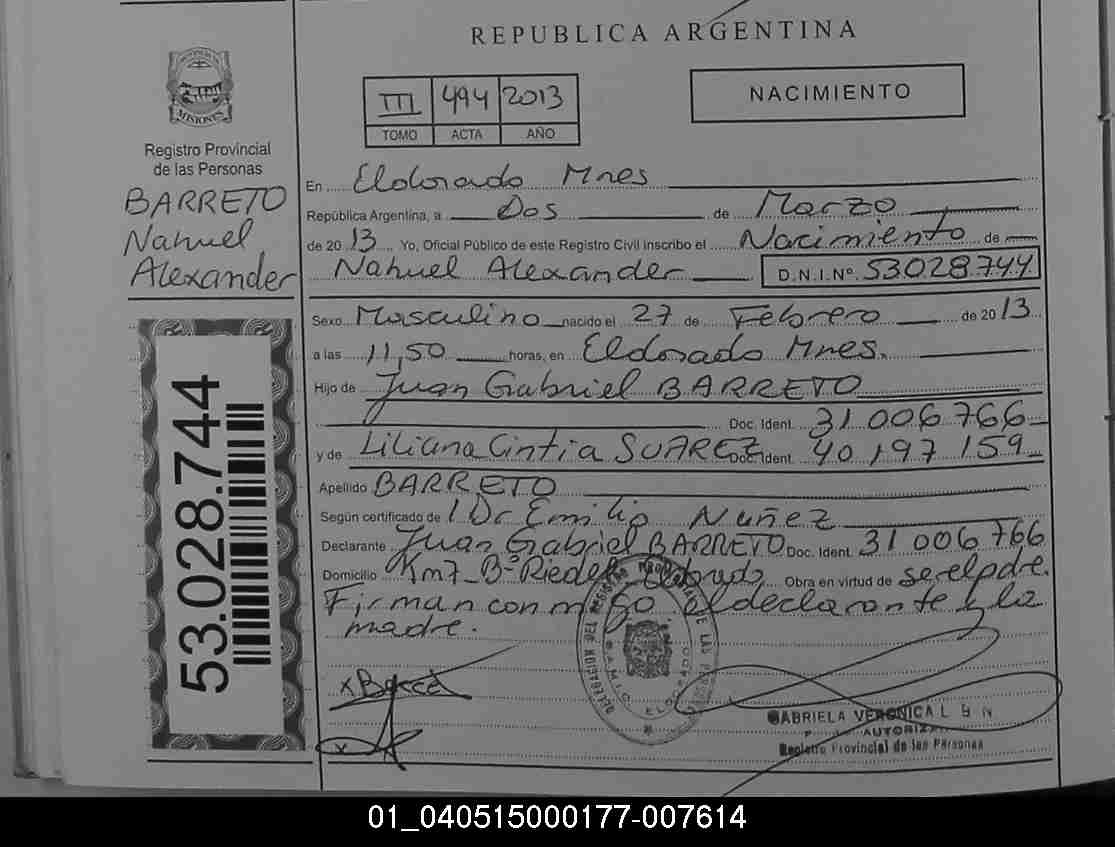 REPUBLICA ARGENTINA
MISIONES
Registro Provincial
de las Personas
BARRETO
Nahuel
Alexander
53.028.744
III 494 2013
TOMO ACTA AÑO
NACIMIENTO
En Eldorado Mnes
República Argentina, a Dos de Marzo
de 2013 Yo, Oficial Público de este Registro Civil inscribo el Nacimiento de
Nahuel Alexander D.N.I.Nº 53028744
Sexo Masculino nacido el 27 de Febrero de 2013
a las 11,50 horas, en Eldorado Mnes.
Hijo de Juan Gabriel BARRETO
Doc. Ident. 31 006 766
y de Liliana Cintia SUAREZ Doc. Ident. 40 197 159
Apellido BARRETO
Según certificado de Dr Emilio Nuñez
Declarante Juan Gabriel BARRETO Doc. Ident. 31 006 766
Domicilio Km7_Bº Riedel Obra en virtud de ser el padre.
Firman conmigo el declarante y la
madre.
GABRIELA VERONICA
Registro Provincial de las Personas
01_040515000177-007614